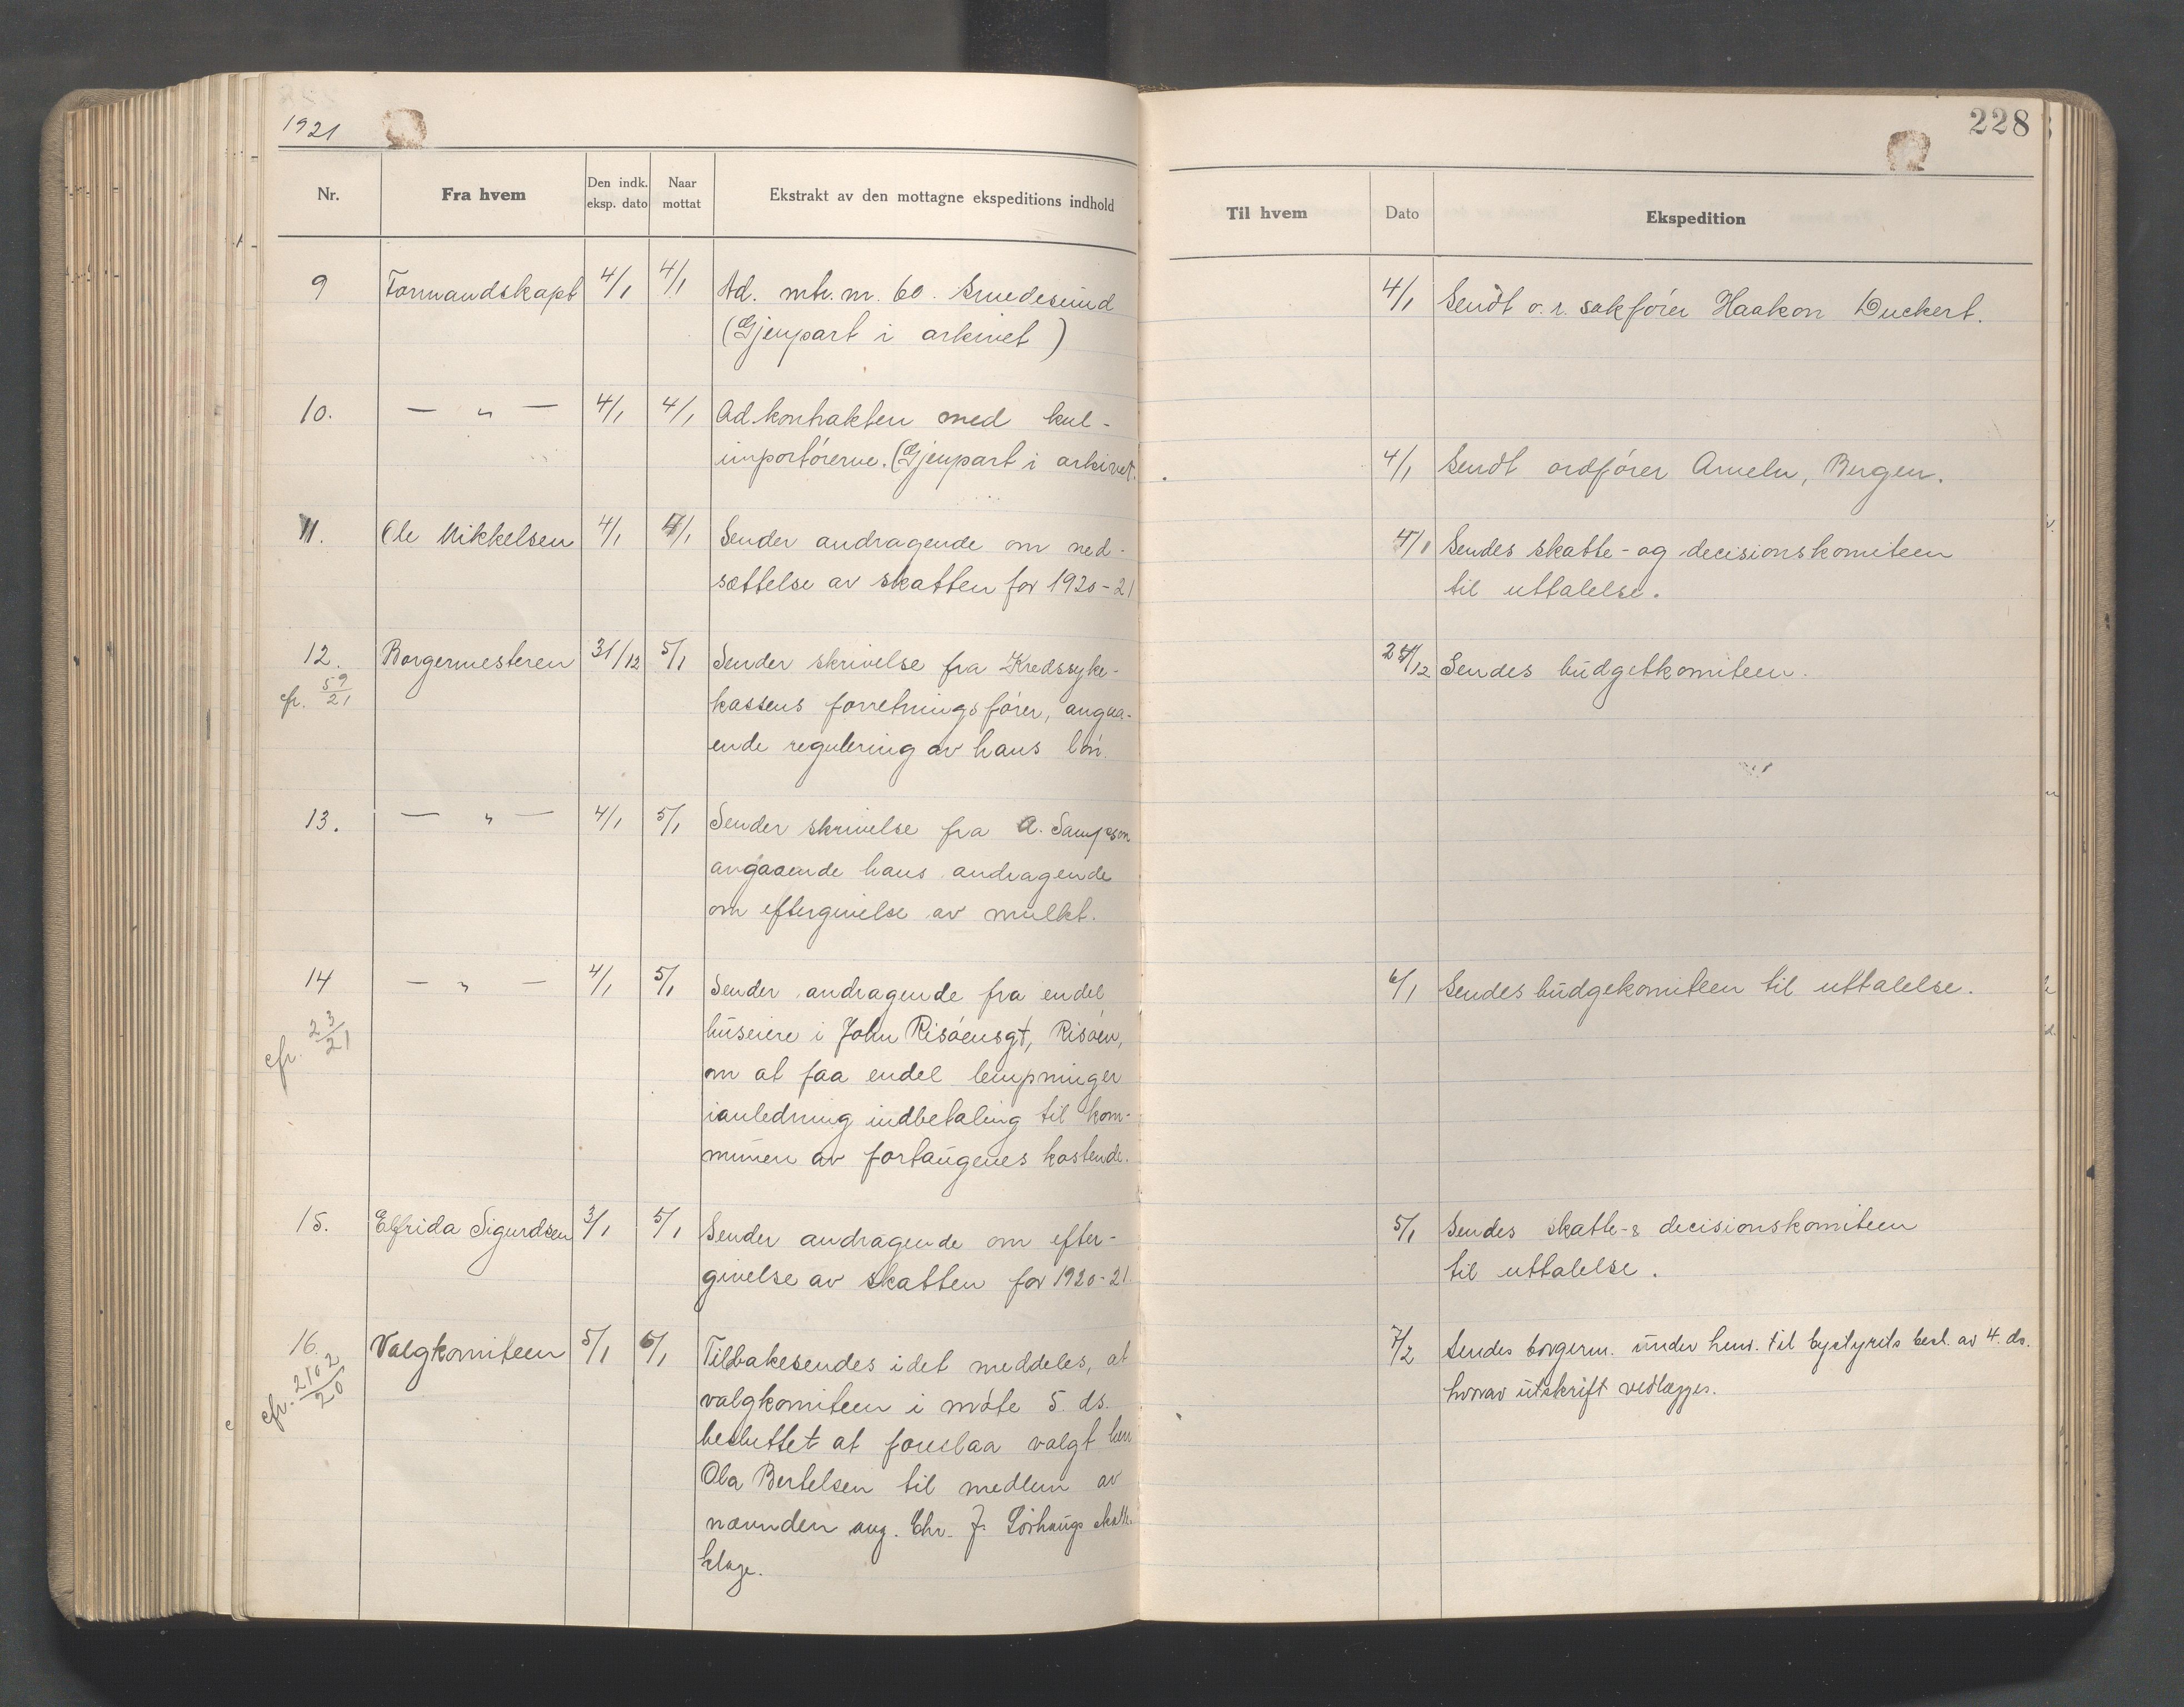 1921
Nr.
Fra hvem
Den indk. eksp. dato
Naar mottat
Ekstrakt av den mottagne ekspeditions indhold
9
Formandskapt
4/1
4/1
Ad. mtr. nr. 60. Smedesund
(Gjenpart i arkivet)
10.
— " —
4/1
4/1
Ad. kontrakten med kul-
importörerne. (Gjenpart i arkivet.
11.
Ole Mikkelsen
4/1
4/1
Sender andragende om ned-
sættelse av skatten for 1920-21
12.
cfr. 59/21
Borgermesteren
31/12
5/1
Sender skrivelse fra Kredssyke-
kassens forretningsförer, angaa-
ende regulering av hans lön.
13.
— " —
4/1
5/1
Sender skrivelse fra A. Sampson
angaaende hans andragende
om eftergivelse av mulkt.
14
cfr. 23/21
— " —
4/1
5/1
Sender andragende fra endel
huseiere i John Risöensgt, Risöen,
om at faa endel lempninger
ianledning indbetaling til kom-
munen av fortaugenes kostende.
15.
Elfrida Sigurdsen
3/1
5/1
Sender andragende om efter-
givelse av skatten for 1920-21
16.
cfr. 2102/20
Valgkomiteen
5/1
6/1
Tilbakesendes idet meddeles, at
valgkomiteen i möte 5. ds.
besluttet at foreslaa valgt herr
Ola Bertelsen til medlem av
nævnden ang. Chr. J. Sörhaugs skatte-
klage.
228
Til hvem
Dato
Ekspedition
4/1
Sendt o. r. sakförer Haakon Duckert.
4/1
Sendt ordförer Ameln, Bergen.
4/1
Sendes skatte- og decisionskomiteen
til uttalelse.
24/12
Sendes budgetkomiteen.
6/1
Sendes budgekomiteen til uttalelse.
5/1
Sendes skatte- & decisionskomiteen
til uttalelse.
7/2
Sendes borgerm. under henv. til bystyrets besl. av 4. ds.
hvorav utskrift vedlægges.